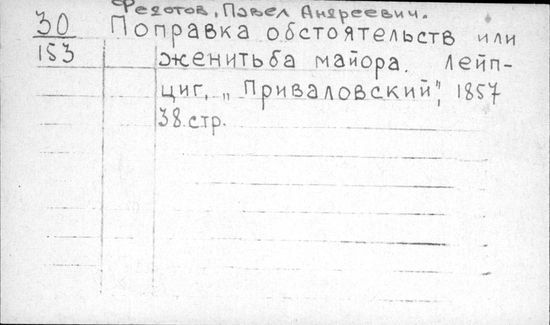 Федотов, Павел Андреевич.
30 Поправка обстоятельств или
153 женитьба майора. Лейп-
циг, „Приваловский", 1857
38.стр.